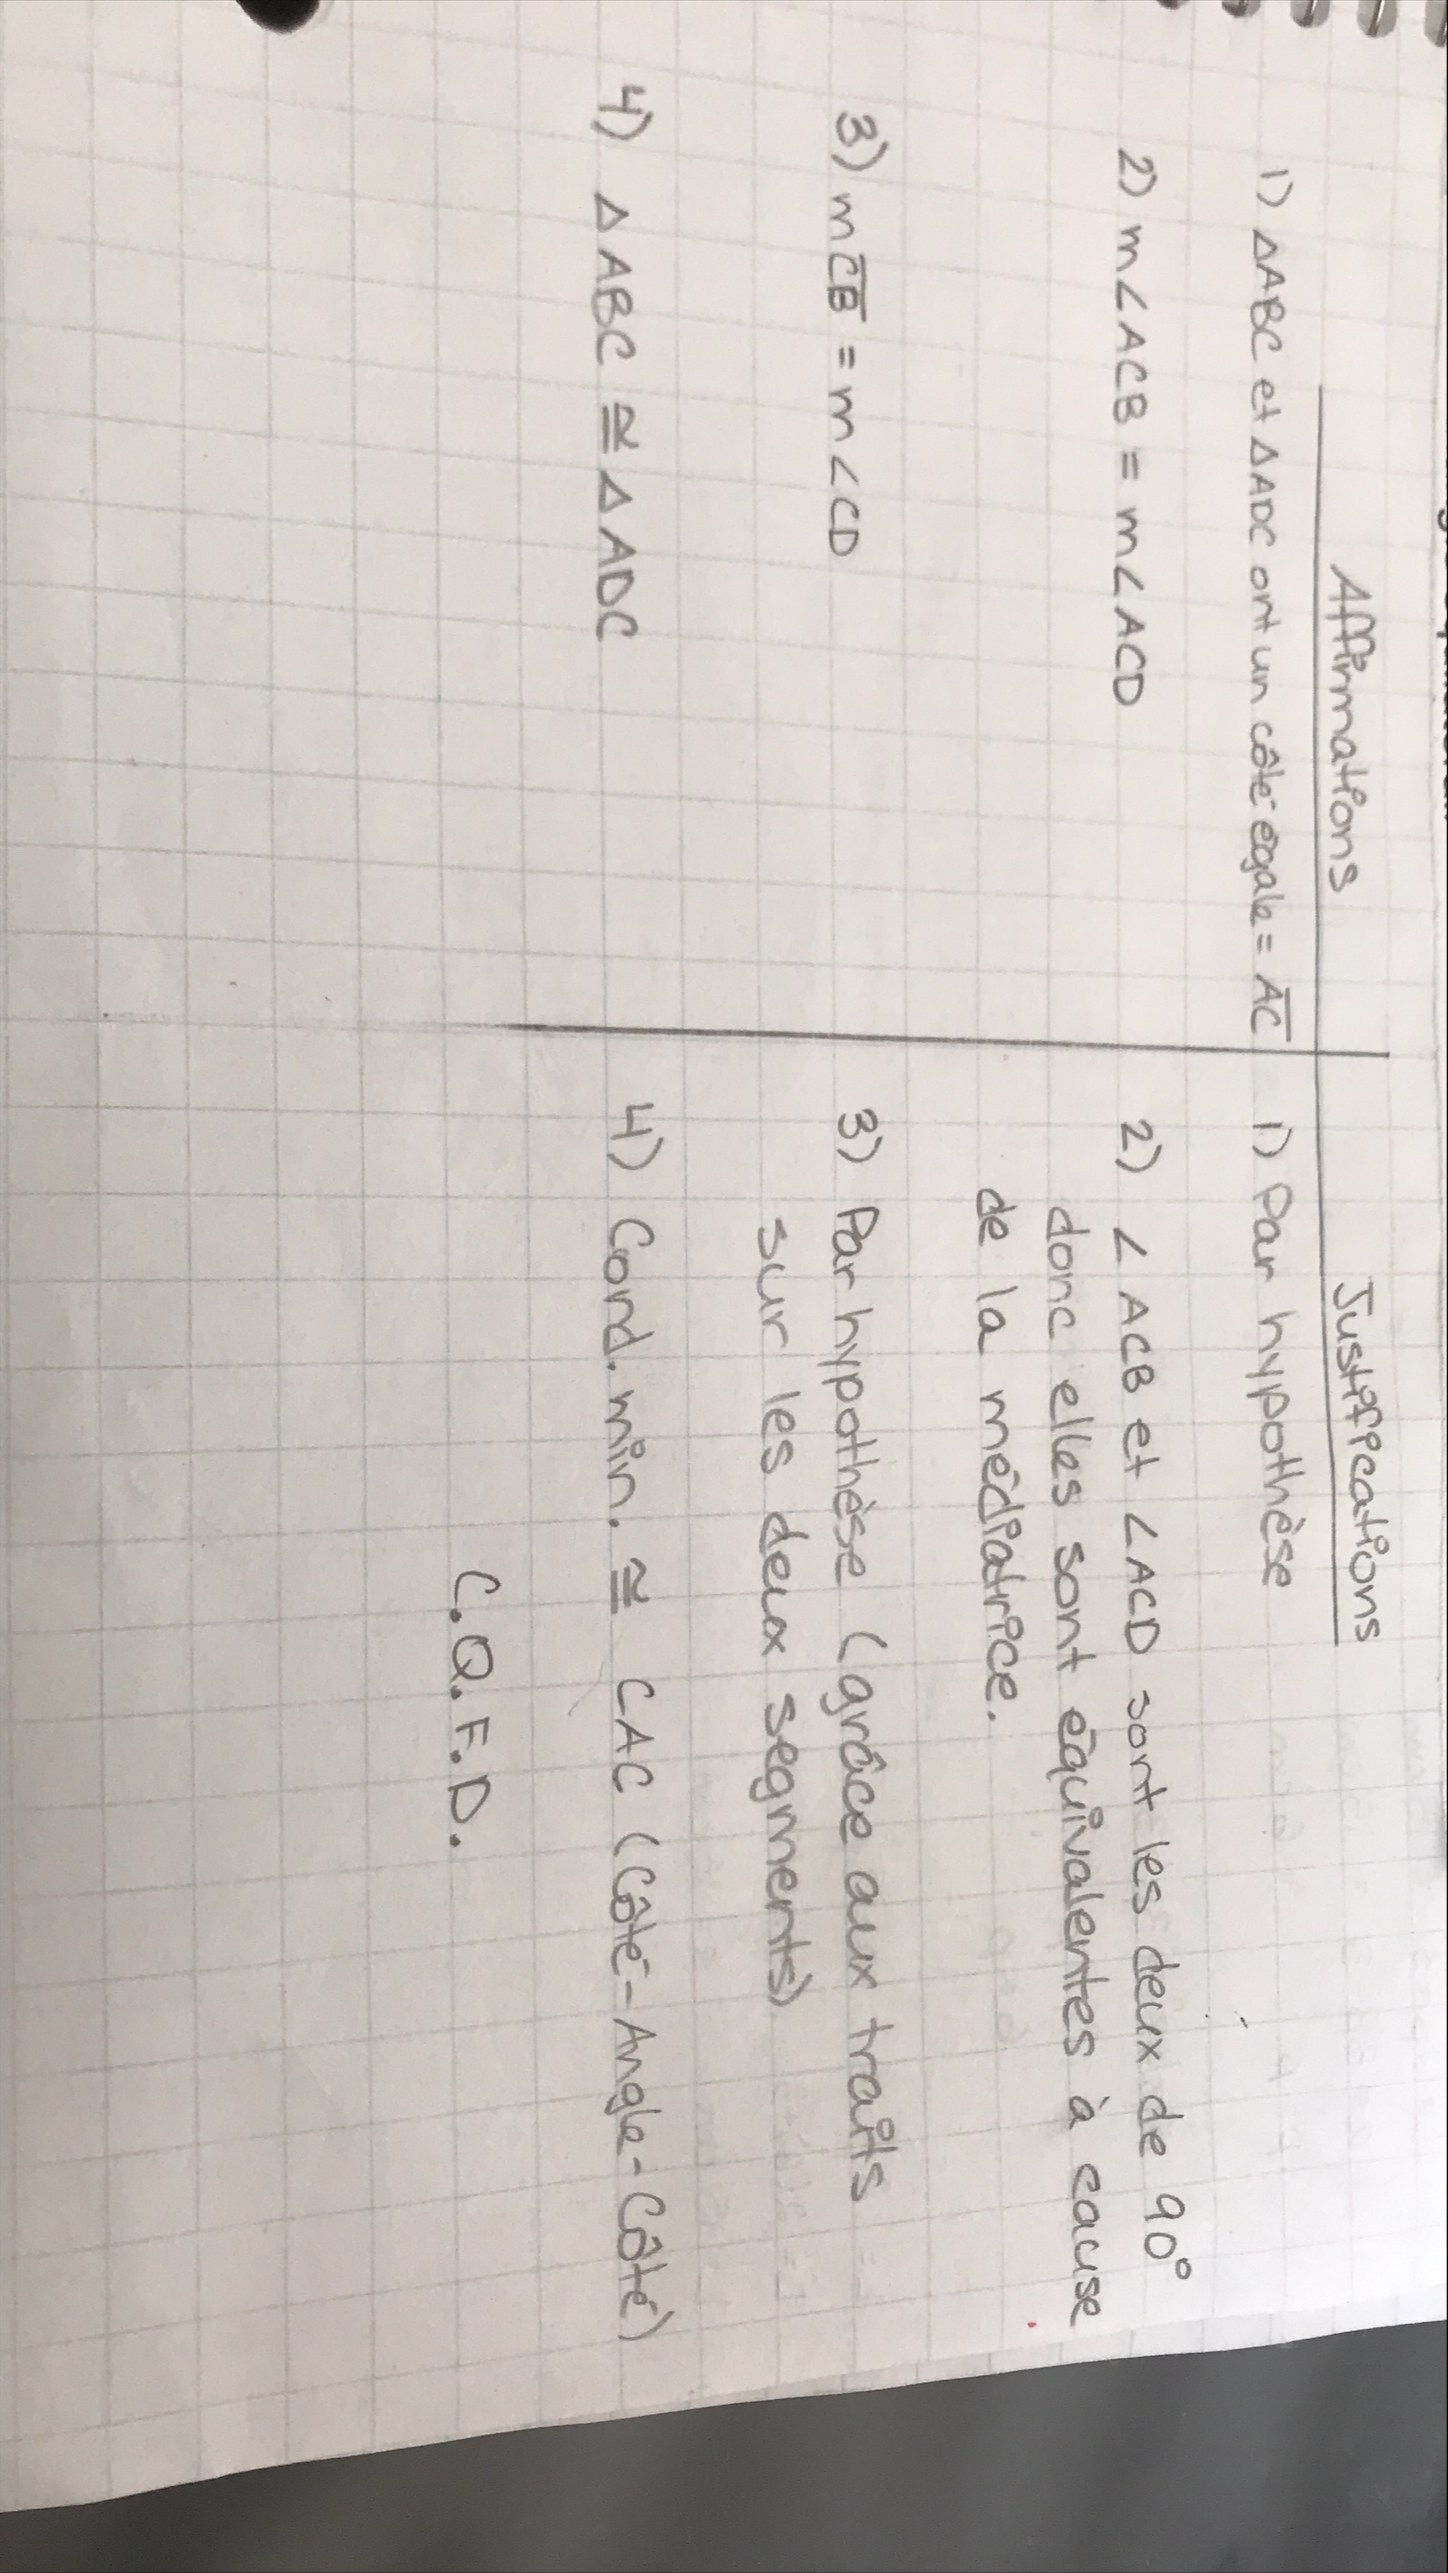 Affirmations
Justifications
1) ΔABC et ΔADC ont un côté égale = A̅C̅
1) Par hypothèse
2) m∠ACB = m∠ACD
2) ∠ACB et ∠ACD sont les deux de 90°
donc elles sont équivalentes à cause
de la médiatrice.
3) mC̅B̅ = m∠CD
3) Par hypothèse (grâce aux traits
sur les deux segments)
4) ΔABC ≅ ΔADC
4) Cond. min. ≅ CAC (Côté-Angle-Côté)
C.Q.F.D.